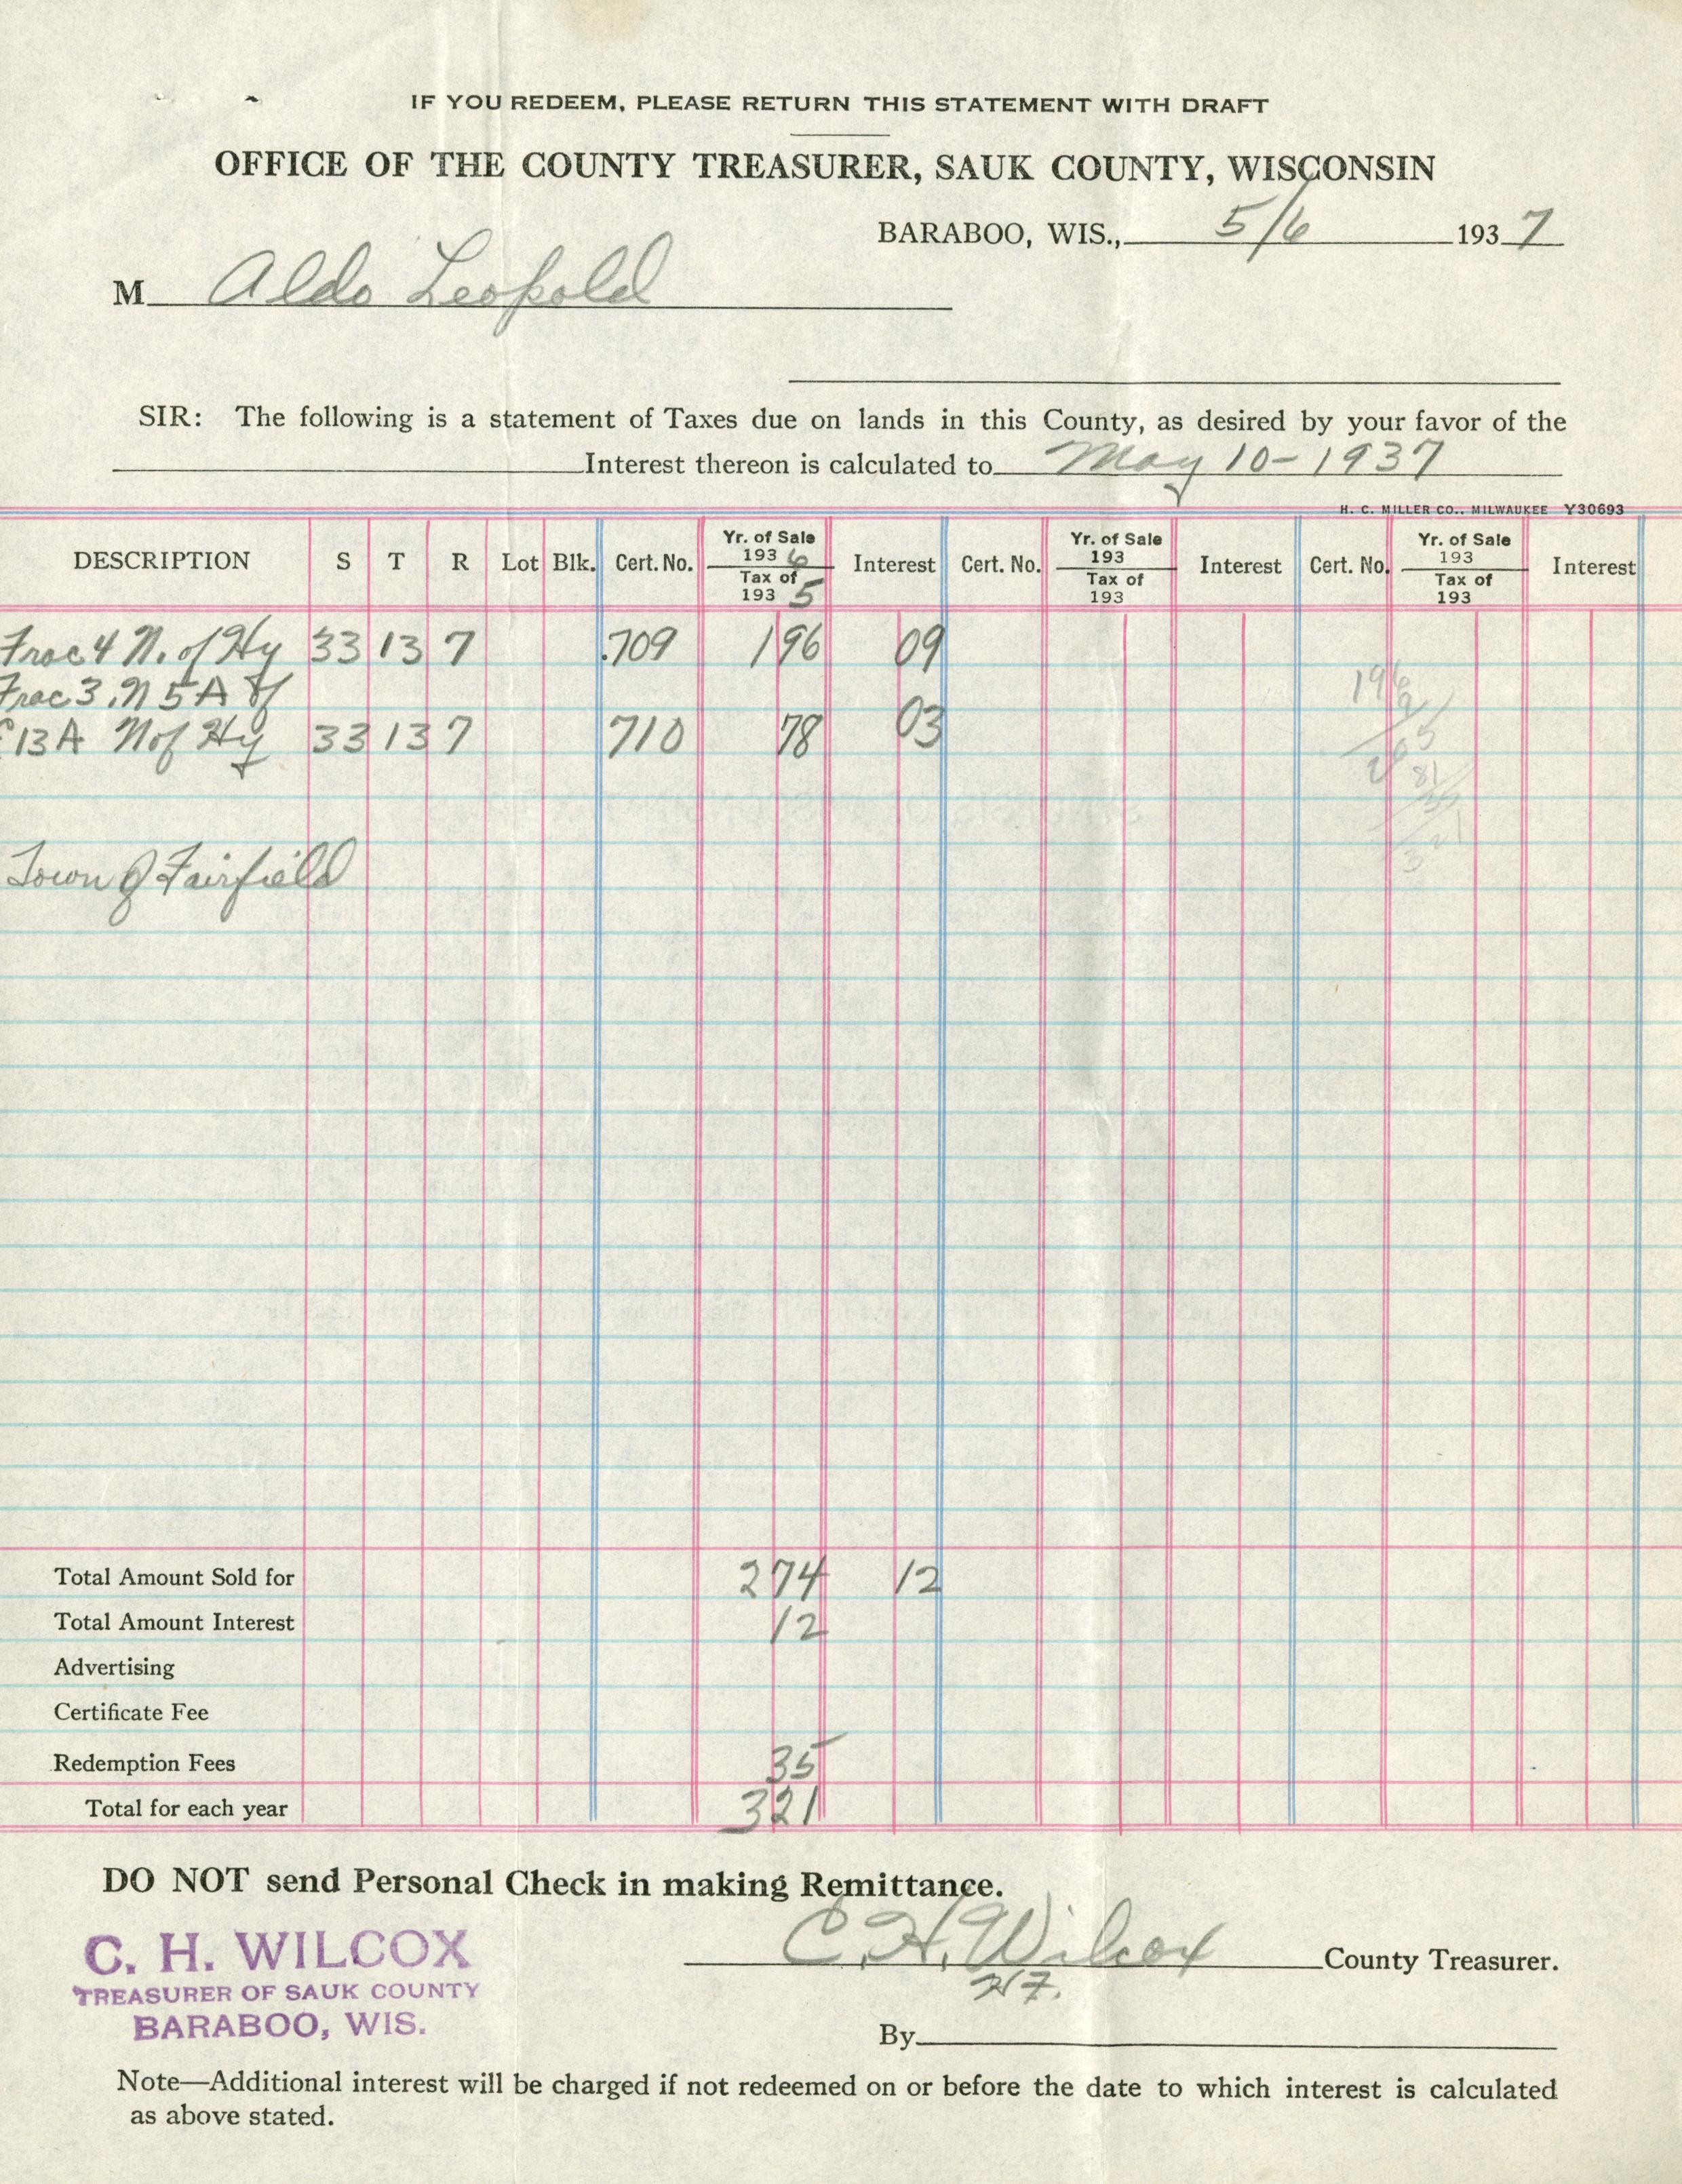 IF YOU REDEEM, PLEASE RETURN THIS STATEMENT WITH DRAFT
OFFICE OF THE COUNTY TREASURER, SAUK COUNTY, WISCONSIN
BARABOO, WIS., 5/6 1937
M Aldo Leopold
SIR: The following is a statement of Taxes due on lands in this County, as desired by your favor of the
Interest thereon is calculated to May 10-1937
H. C. MILLER CO., MILWAUKEE Y30693
DESCRIPTION S T R Lot Blk. Cert. No. Yr. of Sale 1936 Tax of 1935 Interest Cert. No. Yr. of Sale 193 Tax of 193 Interest Cert. No. Yr. of Sale 193 Tax of 193 Interest
Frac 4 N. of Hy 33 13 7 709 1 96 09
Frac 3, N 5 A of
13 A N of Hy 33 13 7 710 78 03
196
Town of Fairfield
321
Total Amount Sold for 2 74 12
Total Amount Interest 12
Advertising
Certificate Fee
Redemption Fees 35
Total for each year 3 21
DO NOT send Personal Check in making Remittance.
C. H. WILCOX
TREASURER OF SAUK COUNTY
BARABOO, WIS.
C. H. Wilcox County Treasurer.
By
Note—Additional interest will be charged if not redeemed on or before the date to which interest is calculated
as above stated.